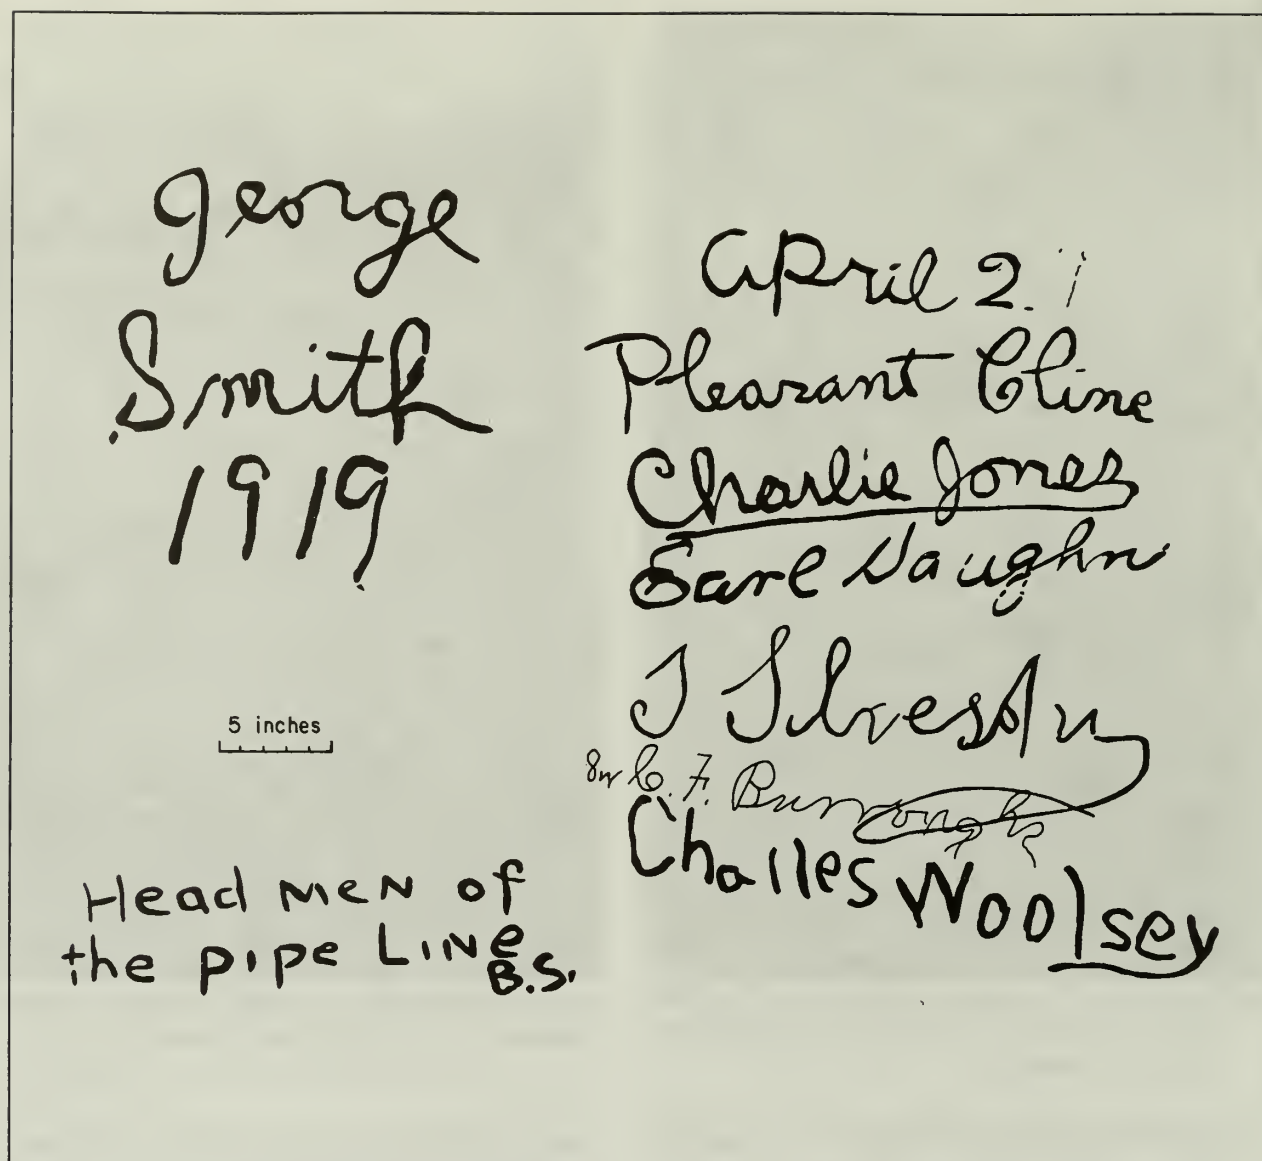 george
Smith
1919
5 inches
Head MEN of
the PIPE LINE
B.S.
April 2.
Pleasant Cline
Charlie Jones
Earl Vaughn
J
C. F. Burroughs
Challes Woolsey